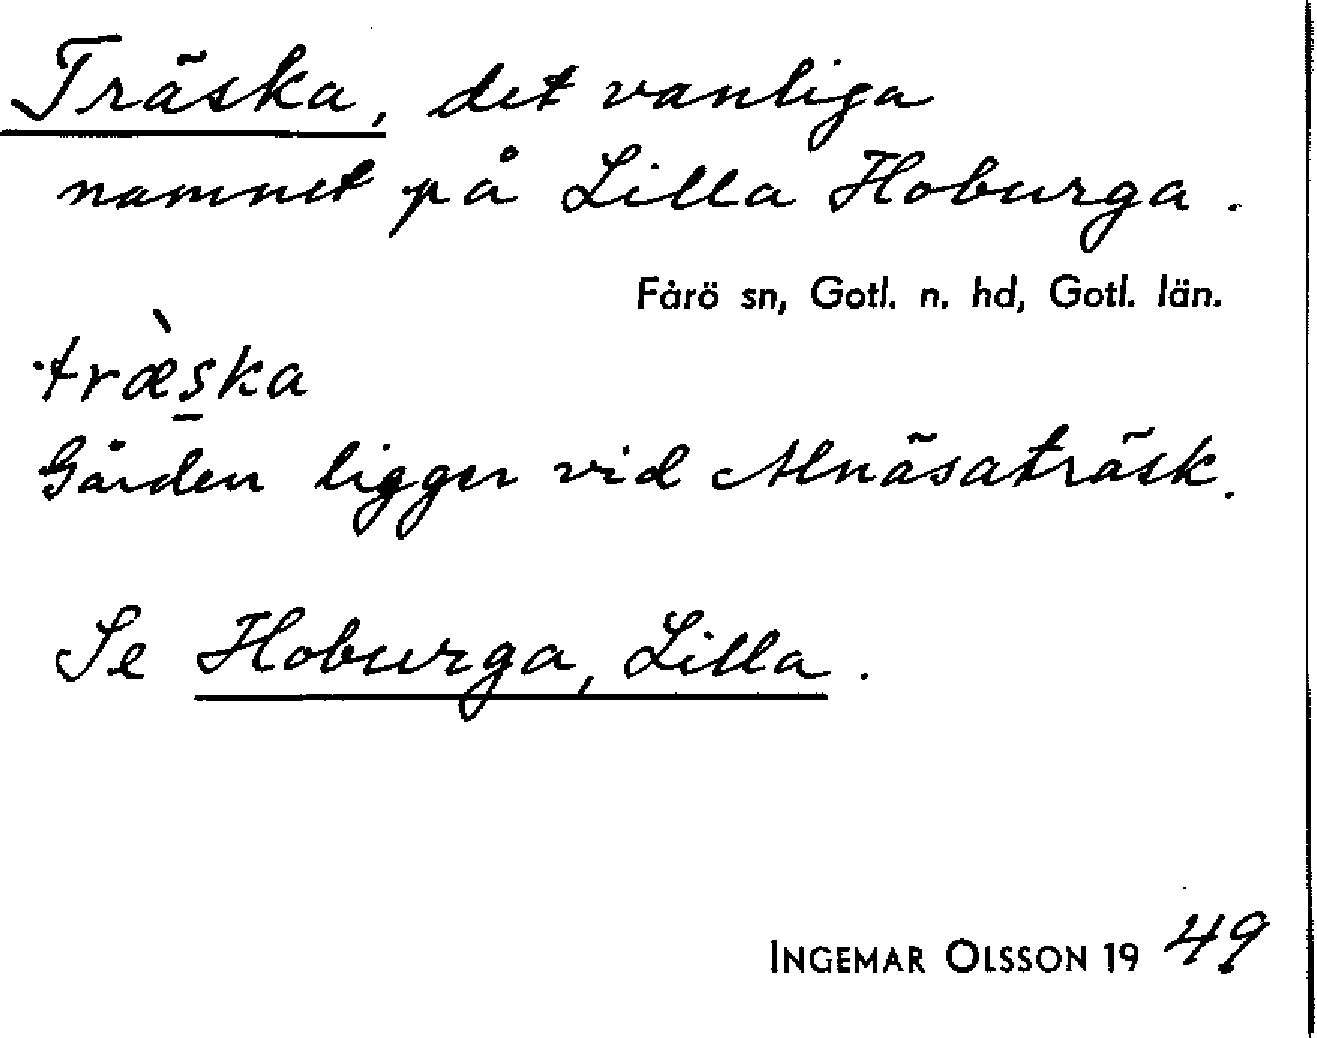 Träska, det vanliga
namnet på Lilla Hoburga.
Fårö sn, Gotl. n. hd, Gotl. län.
træ̀s̲ka
Gården ligger vid Alnäsaträsk.
Se Hoburga, Lilla.
INGEMAR OLSSON 1949